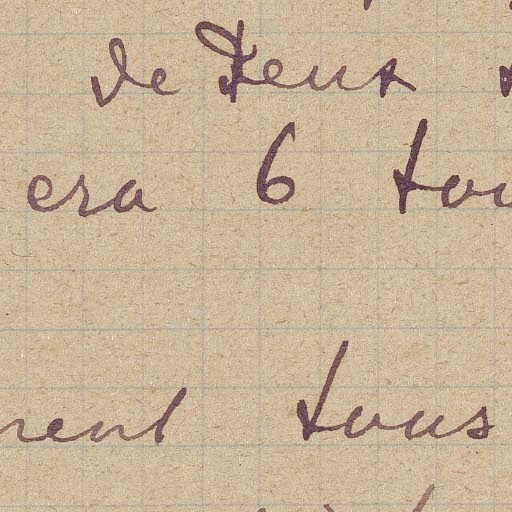 de deux
era 6 tou
rent tous